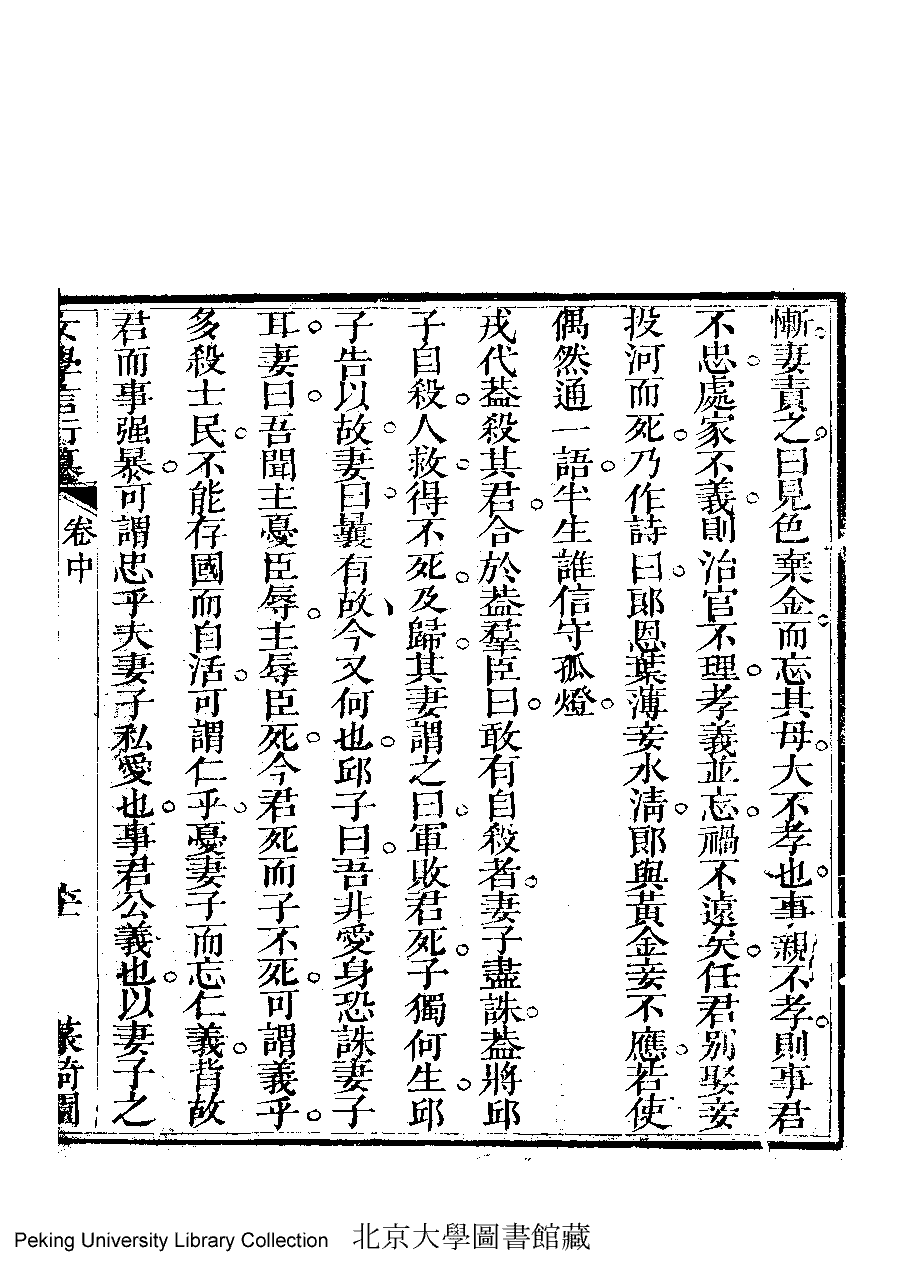 慚妻責之曰見色棄金而忘其母大不孝也事親不孝則事君
不忠處家不義則治官不理孝義並忘禍不遠矣任君別娶妾
投河而死乃作詩曰郎恩葉薄妾水淸郎與黃金妾不應若使
偶然通一語半生誰信守孤燈
戎代葢殺其君合於葢羣臣曰敢有自殺者妻子盡誅葢將邱
子自殺人救得不死及歸其妻謂之曰軍敗君死子獨何生邱
子告以故妻曰曩有故今又何也邱子曰吾非愛身恐誅妻子
耳妻曰吾聞主憂臣辱主辱臣死今君死而子不死可謂義乎
多殺士民不能存國而自活可謂仁乎憂妻子而忘仁義背故
君而事强暴可謂忠乎夫妻子私愛也事君公義也以妻子之
女學言行纂 卷中
Peking University Library Collection 北京大學圖書館藏